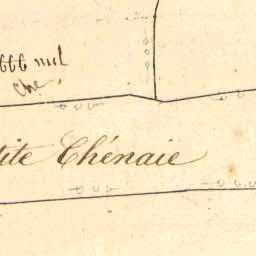 666 mil
che
tite Chénaie